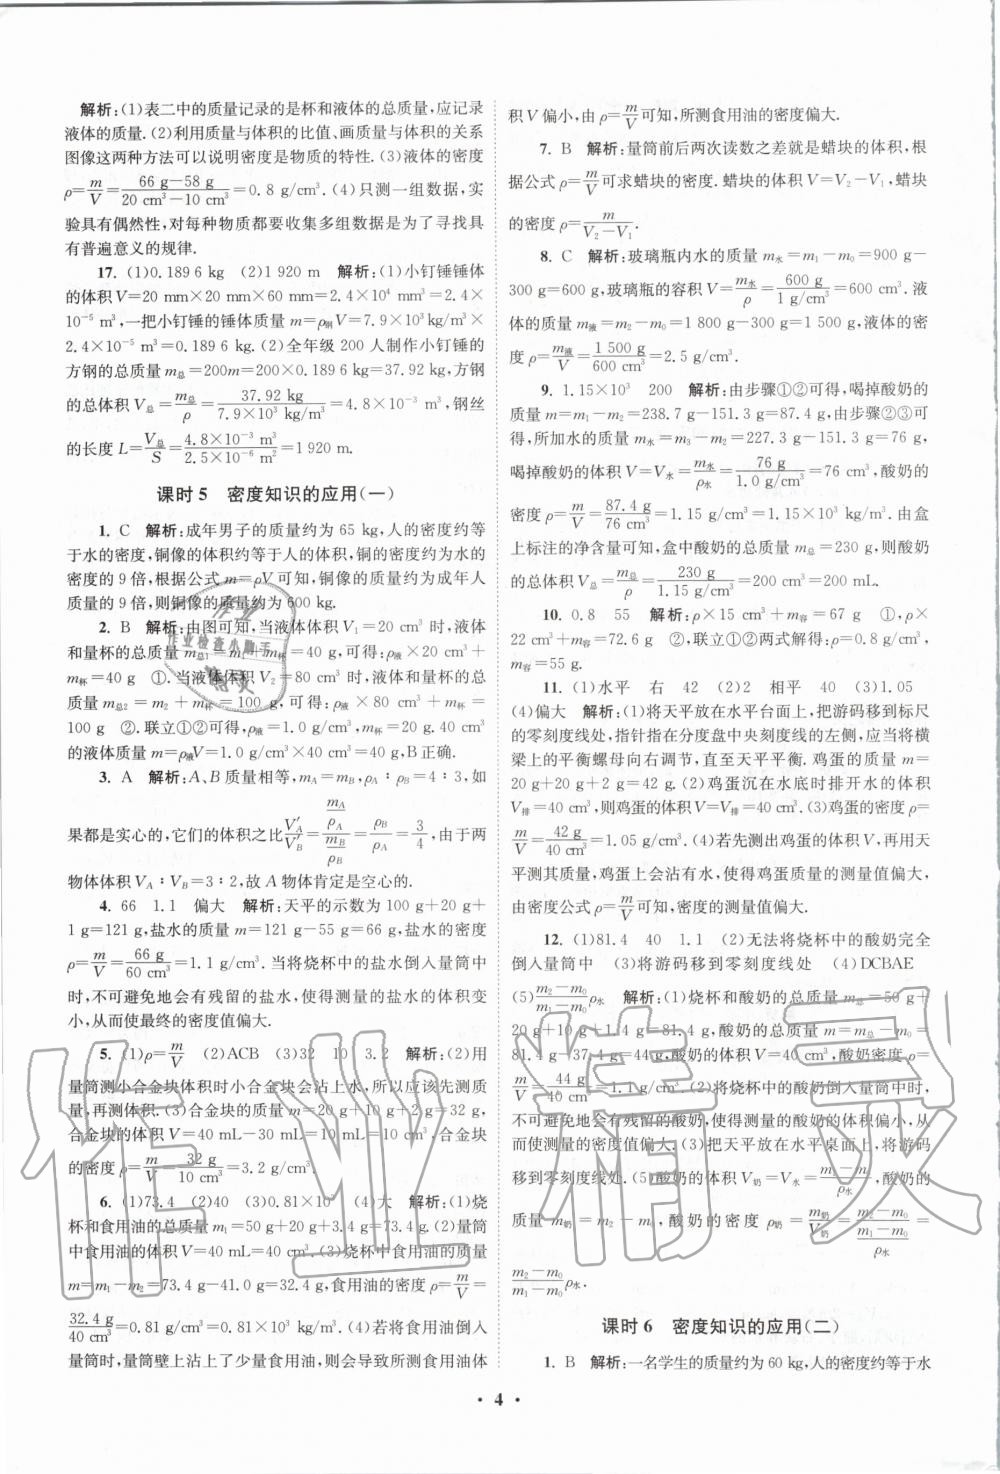 解析:(1)表二中的质量记录的是杯和液体的总质量,应记录
液体的质量. (2)利用质量与体积的比值、画质量与体积的关系
图像这两种方法可以说明密度是物质的特性. (3)液体的密度
ρ=m/V=(66 g-58 g)/(20 cm³-10 cm³)=0.8 g/cm³. (4)只测一组数据,实
验具有偶然性,对每种物质都要收集多组数据是为了寻找具
有普遍意义的规律.
17. (1)0.189 6 kg (2)1 920 m 解析:(1)小钉锤锤体
的体积V=20 mm×20 mm×60 mm=2.4×10⁴ mm³=2.4×
10⁻⁵ m³,一把小钉锤的锤体质量 m=ρ钢V=7.9×10³kg/m³×
2.4×10⁻⁵ m³=0.189 6 kg. (2)全年级 200 人制作小钉锤的
方钢的总质量 m总=200m=200×0.189 6 kg=37.92 kg,方钢
的总体积 V总=m总/ρ=37.92 kg/(7.9×10³ kg/m³)=4.8×10⁻³ m³,钢丝
的长度 L=V总/S=(4.8×10⁻³ m³)/(2.5×10⁻⁶ m²)=1 920 m.
课时 5 密度知识的应用(一)
1. C 解析:成年男子的质量约为 65 kg,人的密度约等
于水的密度,铜像的体积约等于人的体积,铜的密度约为水的
密度的 9 倍,根据公式 m=ρV 可知,铜像的质量约为成年人
质量的 9 倍,则铜像的质量约为 600 kg.
2. B 解析:由图可知,当液体体积 V₁=20 cm³ 时,液体
和量杯的总质量 m总1=m₁+m杯=40 g,可得:ρ液×20 cm³+
m杯=40 g ①. 当液体体积 V₂=80 cm³ 时,液体和量杯的总
质量 m总2=m₂+m杯=100 g,可得:ρ液×80 cm³+m杯=
100 g ②. 联立①②可得,ρ液=1.0 g/cm³,m杯=20 g. 40 cm³
的液体质量 m=ρ液V=1.0 g/cm³×40 cm³=40 g,B正确.
3. A 解析:A、B 质量相等,mA=mB,ρA∶ρB=4∶3,如
果都是实心的,它们的体积之比V′A/V′B=(mA/ρA)/(mB/ρB)=ρB/ρA=3/4,由于两
物体体积 VA∶VB=3∶2,故 A 物体肯定是空心的.
4. 66 1.1 偏大 解析:天平的示数为 100 g+20 g+
1 g=121 g,盐水的质量 m=121 g-55 g=66 g,盐水的密度
ρ=m/V=66 g/60 cm³=1.1 g/cm³. 当将烧杯中的盐水倒入量筒中
时,不可避免地会有残留的盐水,使得测量的盐水的体积变
小,从而使最终的密度值偏大.
5. (1)ρ=m/V (2)ACB (3)32 10 3.2 解析:(2)用
量筒测小合金块体积时小合金块会沾上水,所以应该先测质
量,再测体积. (3)合金块的质量 m=20 g+10 g+2 g=32 g,
合金块的体积 V=40 mL-30 mL=10 mL=10 cm³,合金块
的密度 ρ=m/V=32 g/10 cm³=3.2 g/cm³.
6. (1)73.4 (2)40 (3)0.81×10³ (4)大 解析:(1)烧
杯和食用油的总质量 m₁=50 g+20 g+3.4 g=73.4 g. (2)量筒
中食用油的体积 V=40 mL=40 cm³. (3)烧杯中食用油的质量
m=m₁-m₂=73.4 g-41.0 g=32.4 g,食用油的密度 ρ=m/V=
32.4 g/40 cm³=0.81 g/cm³=0.81×10³ kg/m³. (4)若将食用油倒入
量筒时,量筒壁上沾了少量食用油,则会导致所测食用油体
积 V 偏小,由 ρ=m/V可知,所测食用油的密度偏大.
7. B 解析:量筒前后两次读数之差就是蜡块的体积,根
据公式 ρ=m/V可求蜡块的密度. 蜡块的体积 V=V₂-V₁,蜡块
的密度 ρ=m/(V₂-V₁).
8. C 解析:玻璃瓶内水的质量 m水=m₁-m₀=900 g-
300 g=600 g,玻璃瓶的容积 V=m水/ρ=600 g/(1 g/cm³)=600 cm³. 液
体的质量 m液=m₂-m₀=1 800 g-300 g=1 500 g,液体的密
度 ρ=m液/V=1 500 g/600 cm³=2.5 g/cm³.
9. 1.15×10³ 200 解析:由步骤①②可得,喝掉酸奶的
质量 m=m₁-m₂=238.7 g-151.3 g=87.4 g,由步骤②③可
得,所加水的质量 m水=m₃-m₂=227.3 g-151.3 g=76 g,
喝掉酸奶的体积 V=V水=m水/ρ水=76 g/(1.0 g/cm³)=76 cm³,酸奶的
密度 ρ=m/V=87.4 g/76 cm³=1.15 g/cm³=1.15×10³ kg/m³. 由盒
上标注的净含量可知,盒中酸奶的总质量 m总=230 g,则酸奶
的总体积 V总=m总/ρ=230 g/(1.15 g/cm³)=200 cm³=200 mL.
10. 0.8 55 解析:ρ×15 cm³+m容=67 g ①,ρ×
22 cm³+m容=72.6 g ②,联立①②两式解得:ρ=0.8 g/cm³,
m容=55 g.
11. (1)水平 右 42 (2)2 相平 40 (3)1.05
(4)偏大 解析:(1)将天平放在水平台面上,把游码移到标尺
的零刻度线处,指针指在分度盘中央刻度线的左侧,应当将横
梁上的平衡螺母向右调节,直至天平平衡. 鸡蛋的质量 m=
20 g+20 g+2 g=42 g. (2)鸡蛋沉在水底时排开水的体积
V排=40 cm³,则鸡蛋的体积V=V排=40 cm³. (3)鸡蛋的密度 ρ=
m/V=42 g/40 cm³=1.05 g/cm³. (4)若先测出鸡蛋的体积 V,再用天
平测其质量,鸡蛋上会沾有水,使得鸡蛋质量的测量值偏大,
由密度公式 ρ=m/V可知,密度的测量值偏大.
12. (1)81.4 40 1.1 (2)无法将烧杯中的酸奶完全
倒入量筒中 (3)将游码移到零刻度线处 (4)DCBAE
(5)(m₂-m₀)/(m₁-m₀)ρ水 解析:(1)烧杯和酸奶的总质量 m总=50 g+
20 g+10 g+1.4 g=81.4 g,酸奶的总质量 m=m总-m₀=
81.4 g-37.4 g=44 g,酸奶的体积V=40 cm³,酸奶密度 ρ=
m/V=44 g/40 cm³=1.1 g/cm³. (2)将烧杯中的酸奶倒入量筒中时,不
可避免地会有残留的酸奶,使得测量的酸奶的体积偏小,从
而使测量的密度值偏大. (3)把天平放在水平桌面上,将游码
移到零刻度线处. (5)酸奶的体积 V奶=V水=(m₁-m₀)/ρ水,酸奶的
质量 m奶=m₂-m₀,酸奶的密度 ρ奶=m奶/V奶=(m₂-m₀)/((m₁-m₀)/ρ水)=
(m₂-m₀)/(m₁-m₀)ρ水.
课时 6 密度知识的应用(二)
1. B 解析:一名学生的质量约为 60 kg,人的密度约等于水
· 4 ·
作业
作业检查小助手
精灵
作业精灵